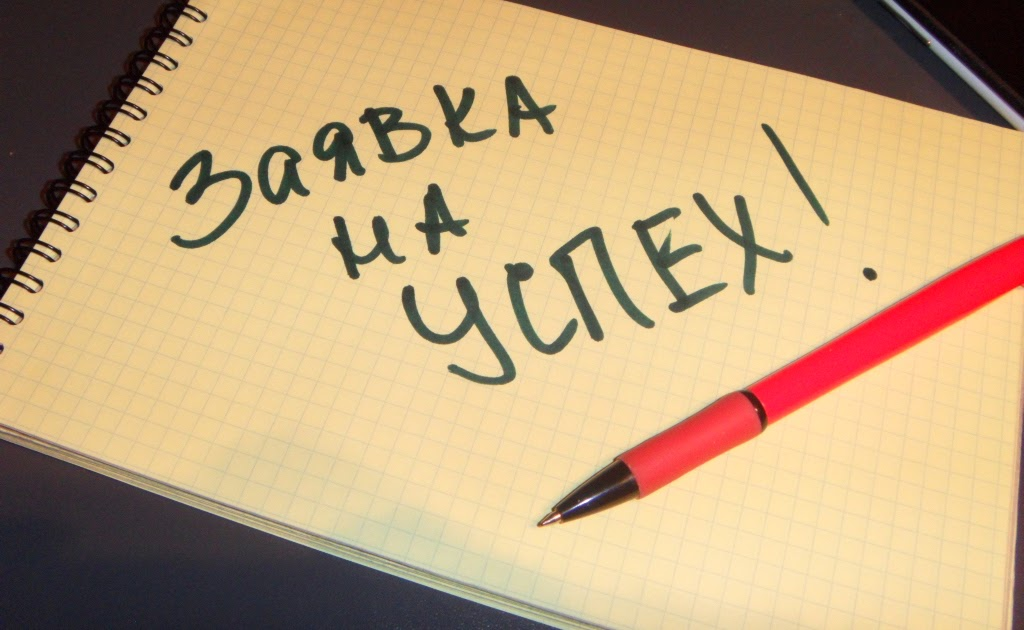 Заявка
на
успех!